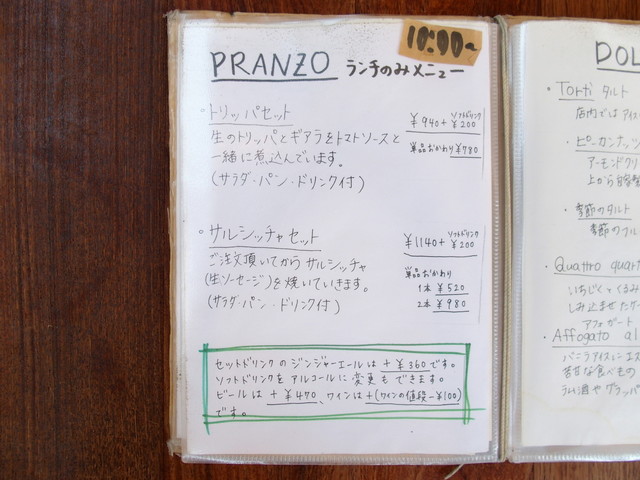 10:00~
PRANZO ランチのみメニュー
・トリッパセット ¥940+ソフトドリンク¥200
生のトリッパとギアラをトマトソースと 単品おかわり¥780
一緒に煮込んでいます。
(サラダ・パン・ドリンク付)
・サルシッチャセット ¥1140+ソフトドリンク¥200
ご注文頂いてからサルシッチャ 単品おかわり
(生ソーセージ)を焼いていきます。 1本 ¥520
(サラダ・パン・ドリンク付) 2本 ¥980
セットドリンクのジンジャーエールは+¥360です。
ソフトドリンクをアルコールに変更もできます。
ビールは+¥470、ワインは+(ワインの値段-¥100)
です。
DOL
・Torti タルト
店内ではアイス
・ピーカンナッツ
アーモンドクリ
上から自家製
・季節のタルト
季節のフル
・Quattro quart
いちじくとくるみ
しみ込ませたケー
アフォガート
・Affogato al
バニラアイスにエス
苦甘な食べもの
ラム酒やグラッパ